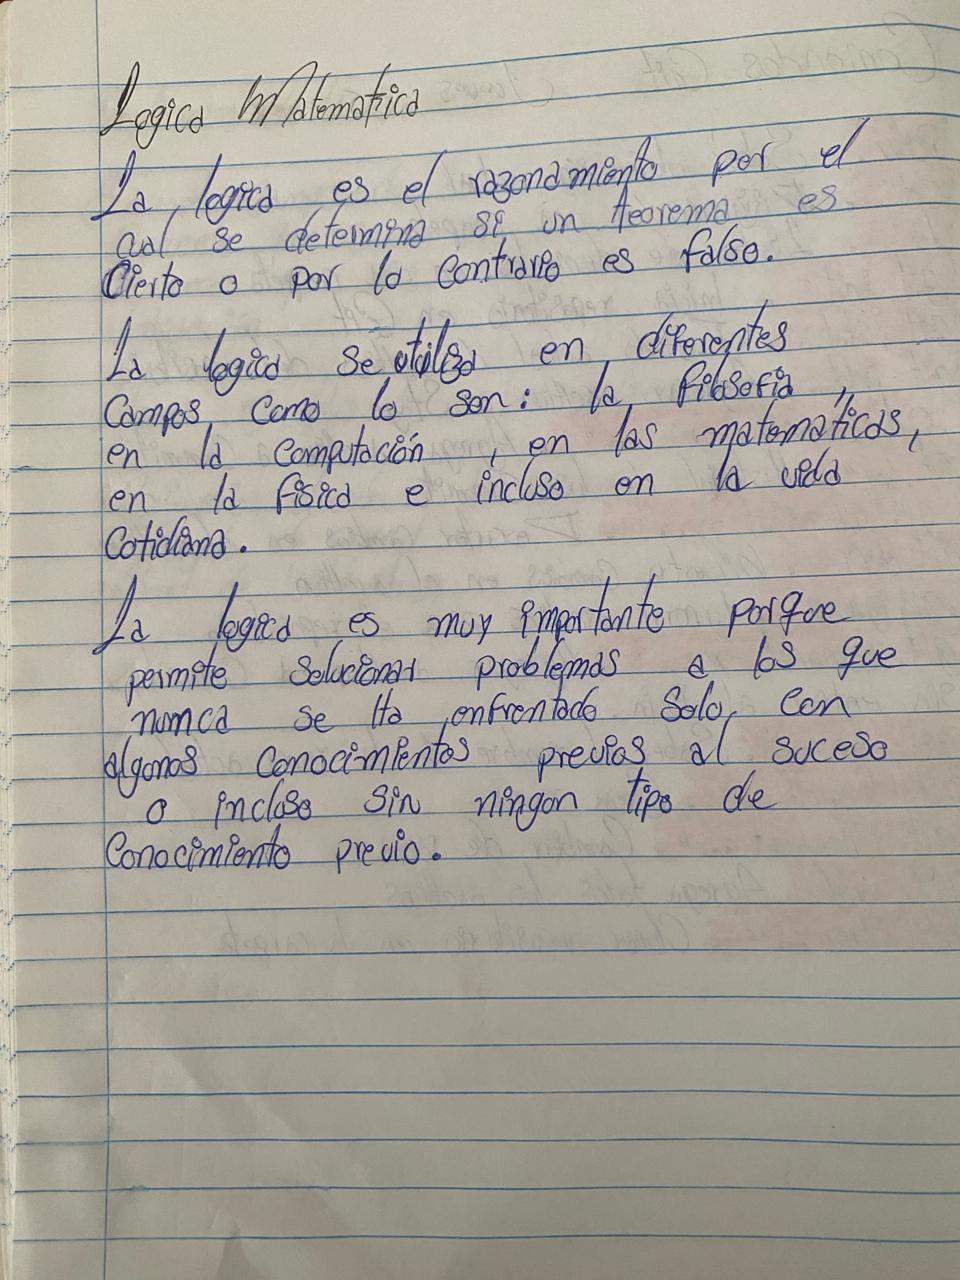 Logica Matematica
La logica es el razonamiento por el
cual se determina si un teorema es
Cierto o por lo Contrario es falso.
La logica se utiliza en diferentes
Campos como lo son: la filosofia,
en la Computación, en las matemáticas,
en la física e incluso en la vida
Cotidiana.
La logica es muy importante porque
permite solucionar problemas a los que
nunca se ha enfrentado solo con
algunos conocimientos previos al suceso
o incluso sin ningun tipo de
Conocimiento previo.